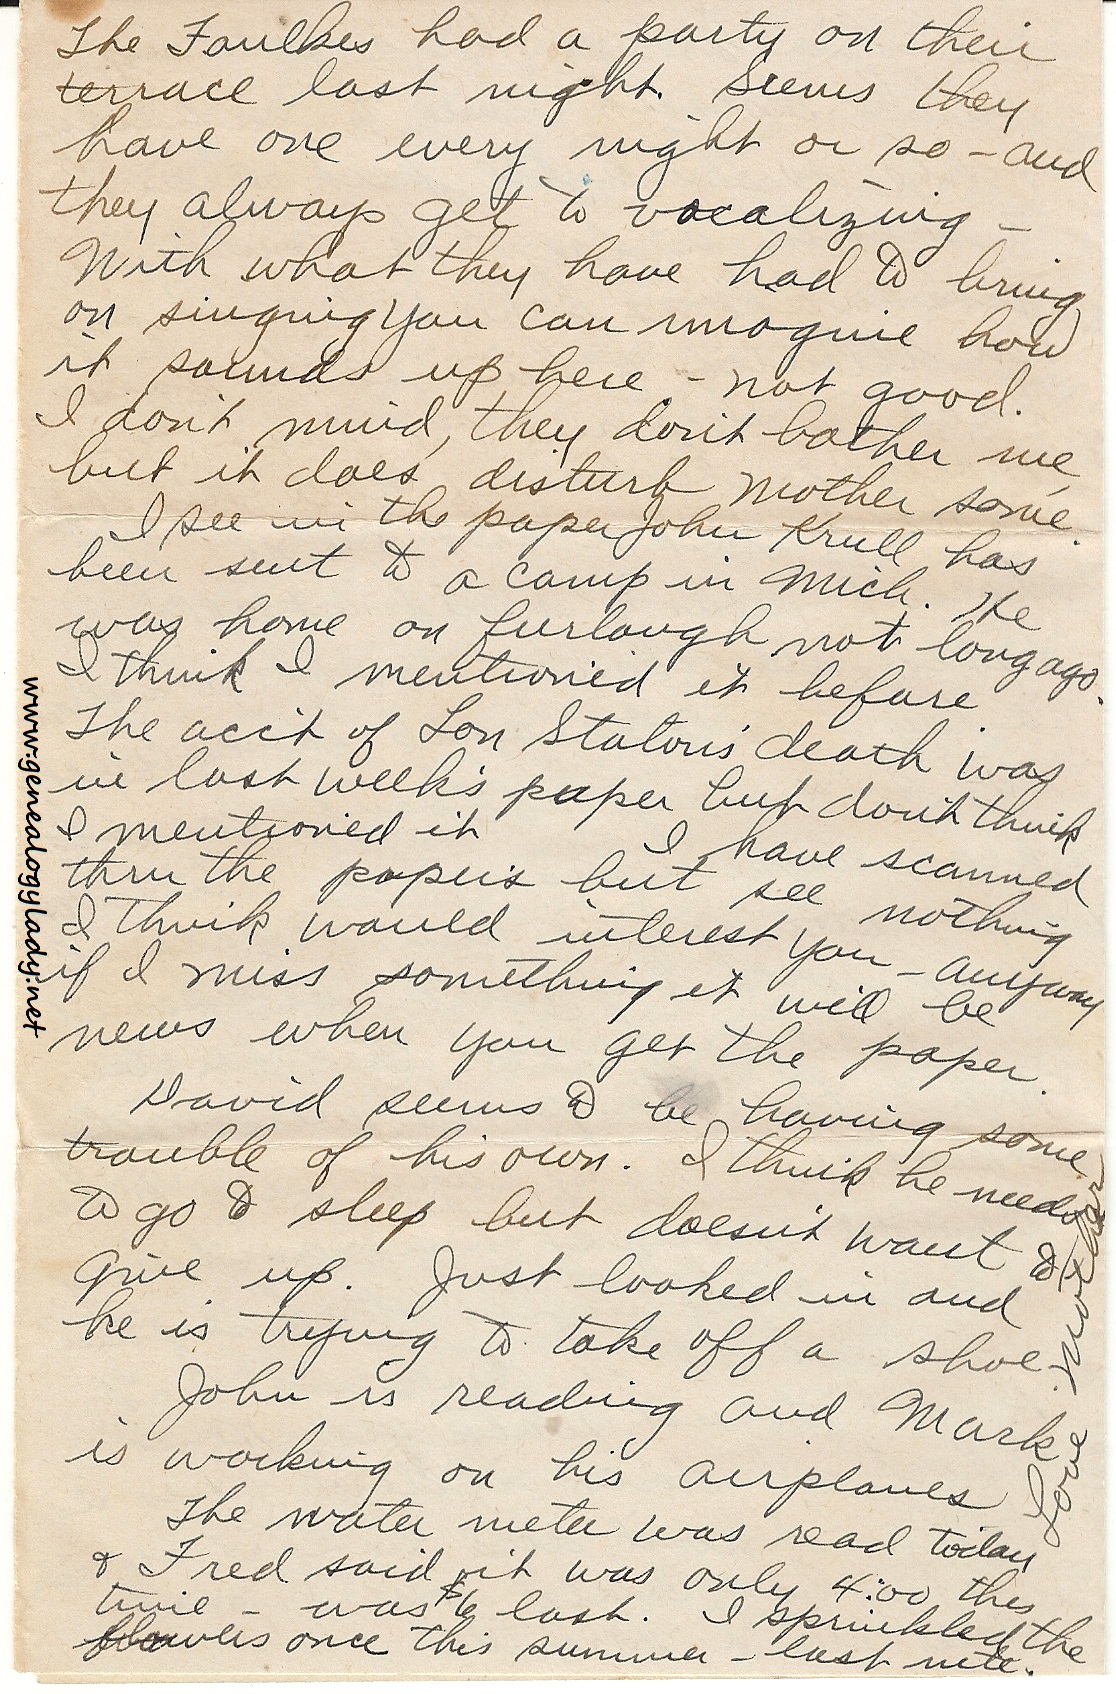 The Faulkes had a party on their
terrace last night. Seems they
have one every night or so – and
they always get to vocalizing –
With what they have had to bring
on singing you can imagine how
it sounds up here – not good.
I don't mind, they don't bother me
but it does disturb Mother some.
I see in the paper John Krull has
been sent to a camp in Mich. He
was home on furlough not long ago.
I think I mentioned it before
The acc't of Lon Staton's death was
in last week's paper but don't think
I mentioned it I have scanned
thru the papers but see nothing
I think would interest you – anyway
if I miss something it will be
news when you get the paper.
David seems to be having some
trouble of his own. I think he needs
to go to sleep but doesn't want to
give up. Just looked in and
he is trying to take off a shoe.
John is reading and Mark
is working on his airplanes
The water meter was read today
& Fred said it was only 4:00 this
time – was $6 last. I sprinkled the
flowers once this summer – last nite.
Love Mother
www.genealogylady.net